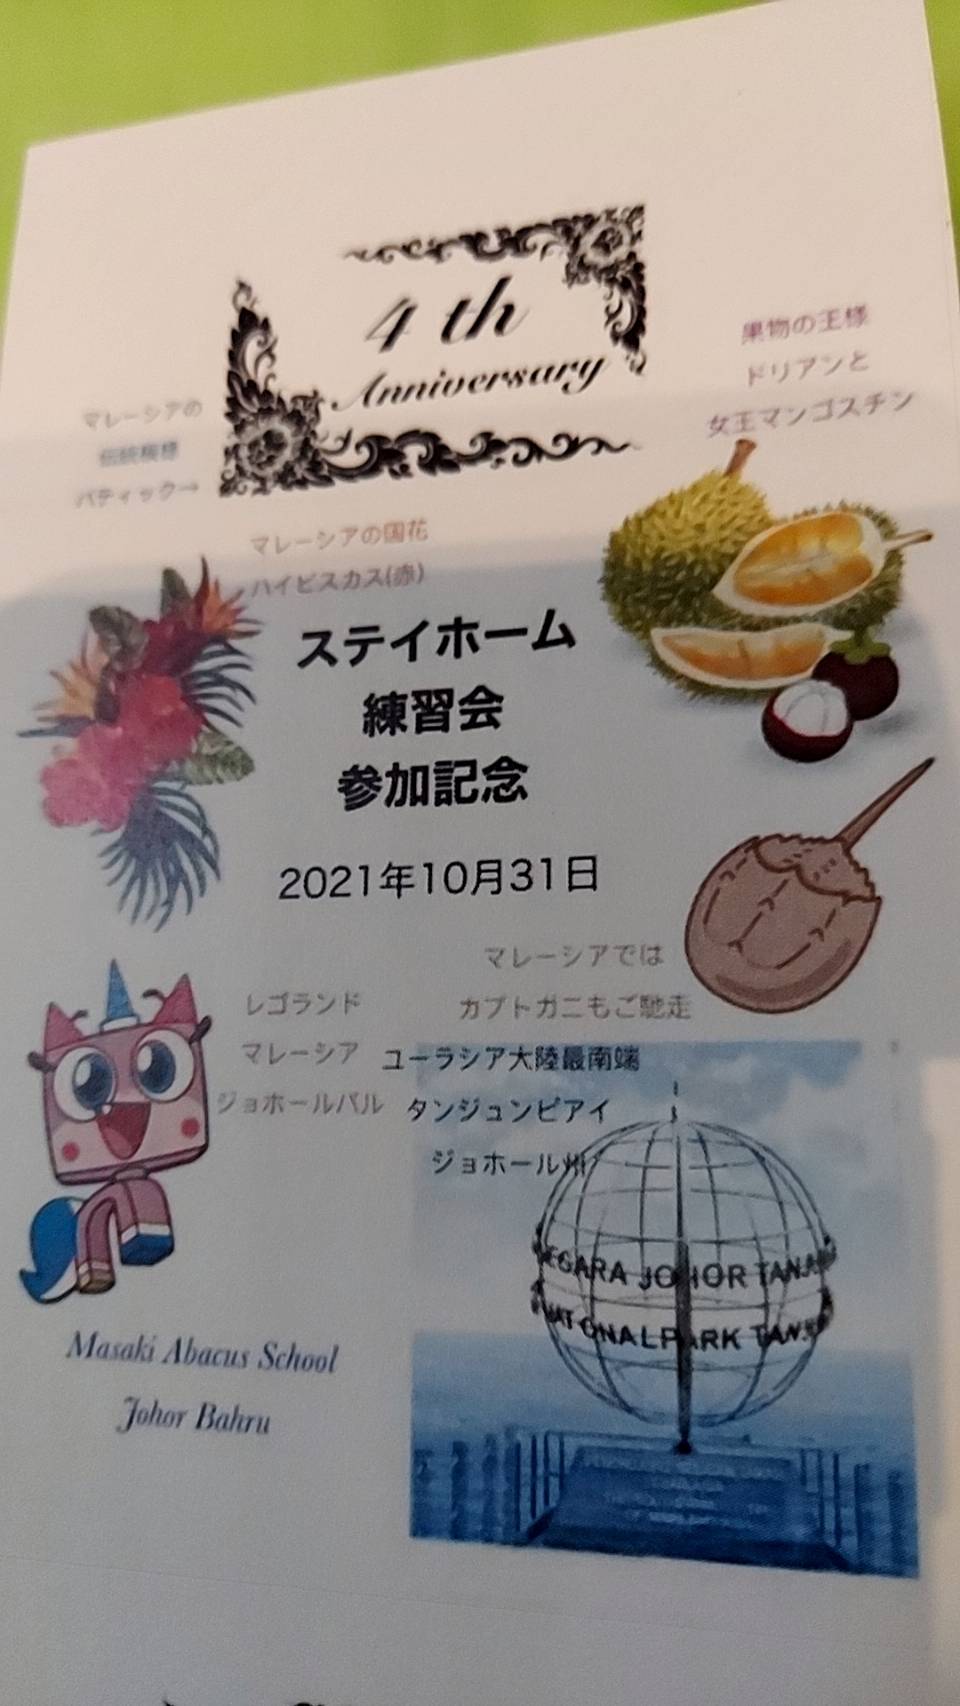 4 th
Anniversary
果物の王様
ドリアンと
女王マンゴスチン
マレーシアの
伝統模様
バティック→
マレーシアの国花
ハイビスカス(赤)
ステイホーム
練習会
参加記念
2021年10月31日
マレーシアでは
カブトガニもご馳走
レゴランド
マレーシア
ジョホールバル
ユーラシア大陸最南端
タンジュンピアイ
ジョホール州
EGARA JOHOR TANJ
NATIONAL PARK TANJ
Masaki Abacus School
Johor Bahru